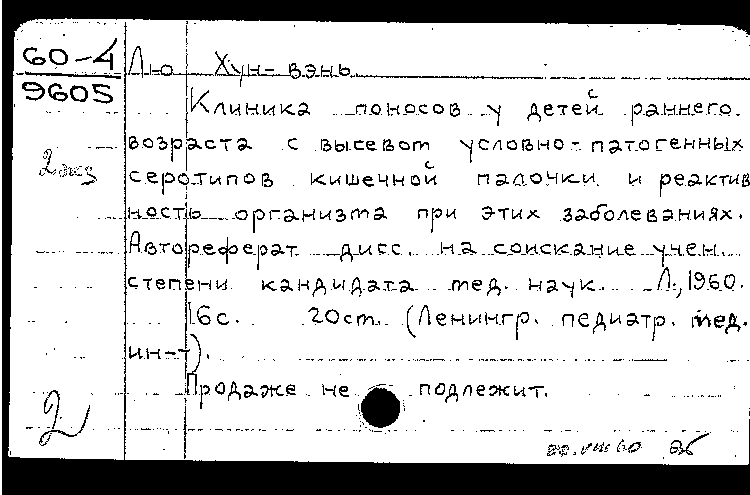 60-4 Лю Хун-вэнь.
9605
Клиника поносов у детей раннего.
возраста с высевом условно-патогенных
2 экз
серотипов кишечной палочки и реактив
ность организма при этих заболеваниях.
Автореферат дисс. на соискание учен.
степени кандидата мед. наук. Л., 1960.
16с. 20см. (Ленингр. педиатр. мед.
ин-т).
Продаже не подлежит.
2